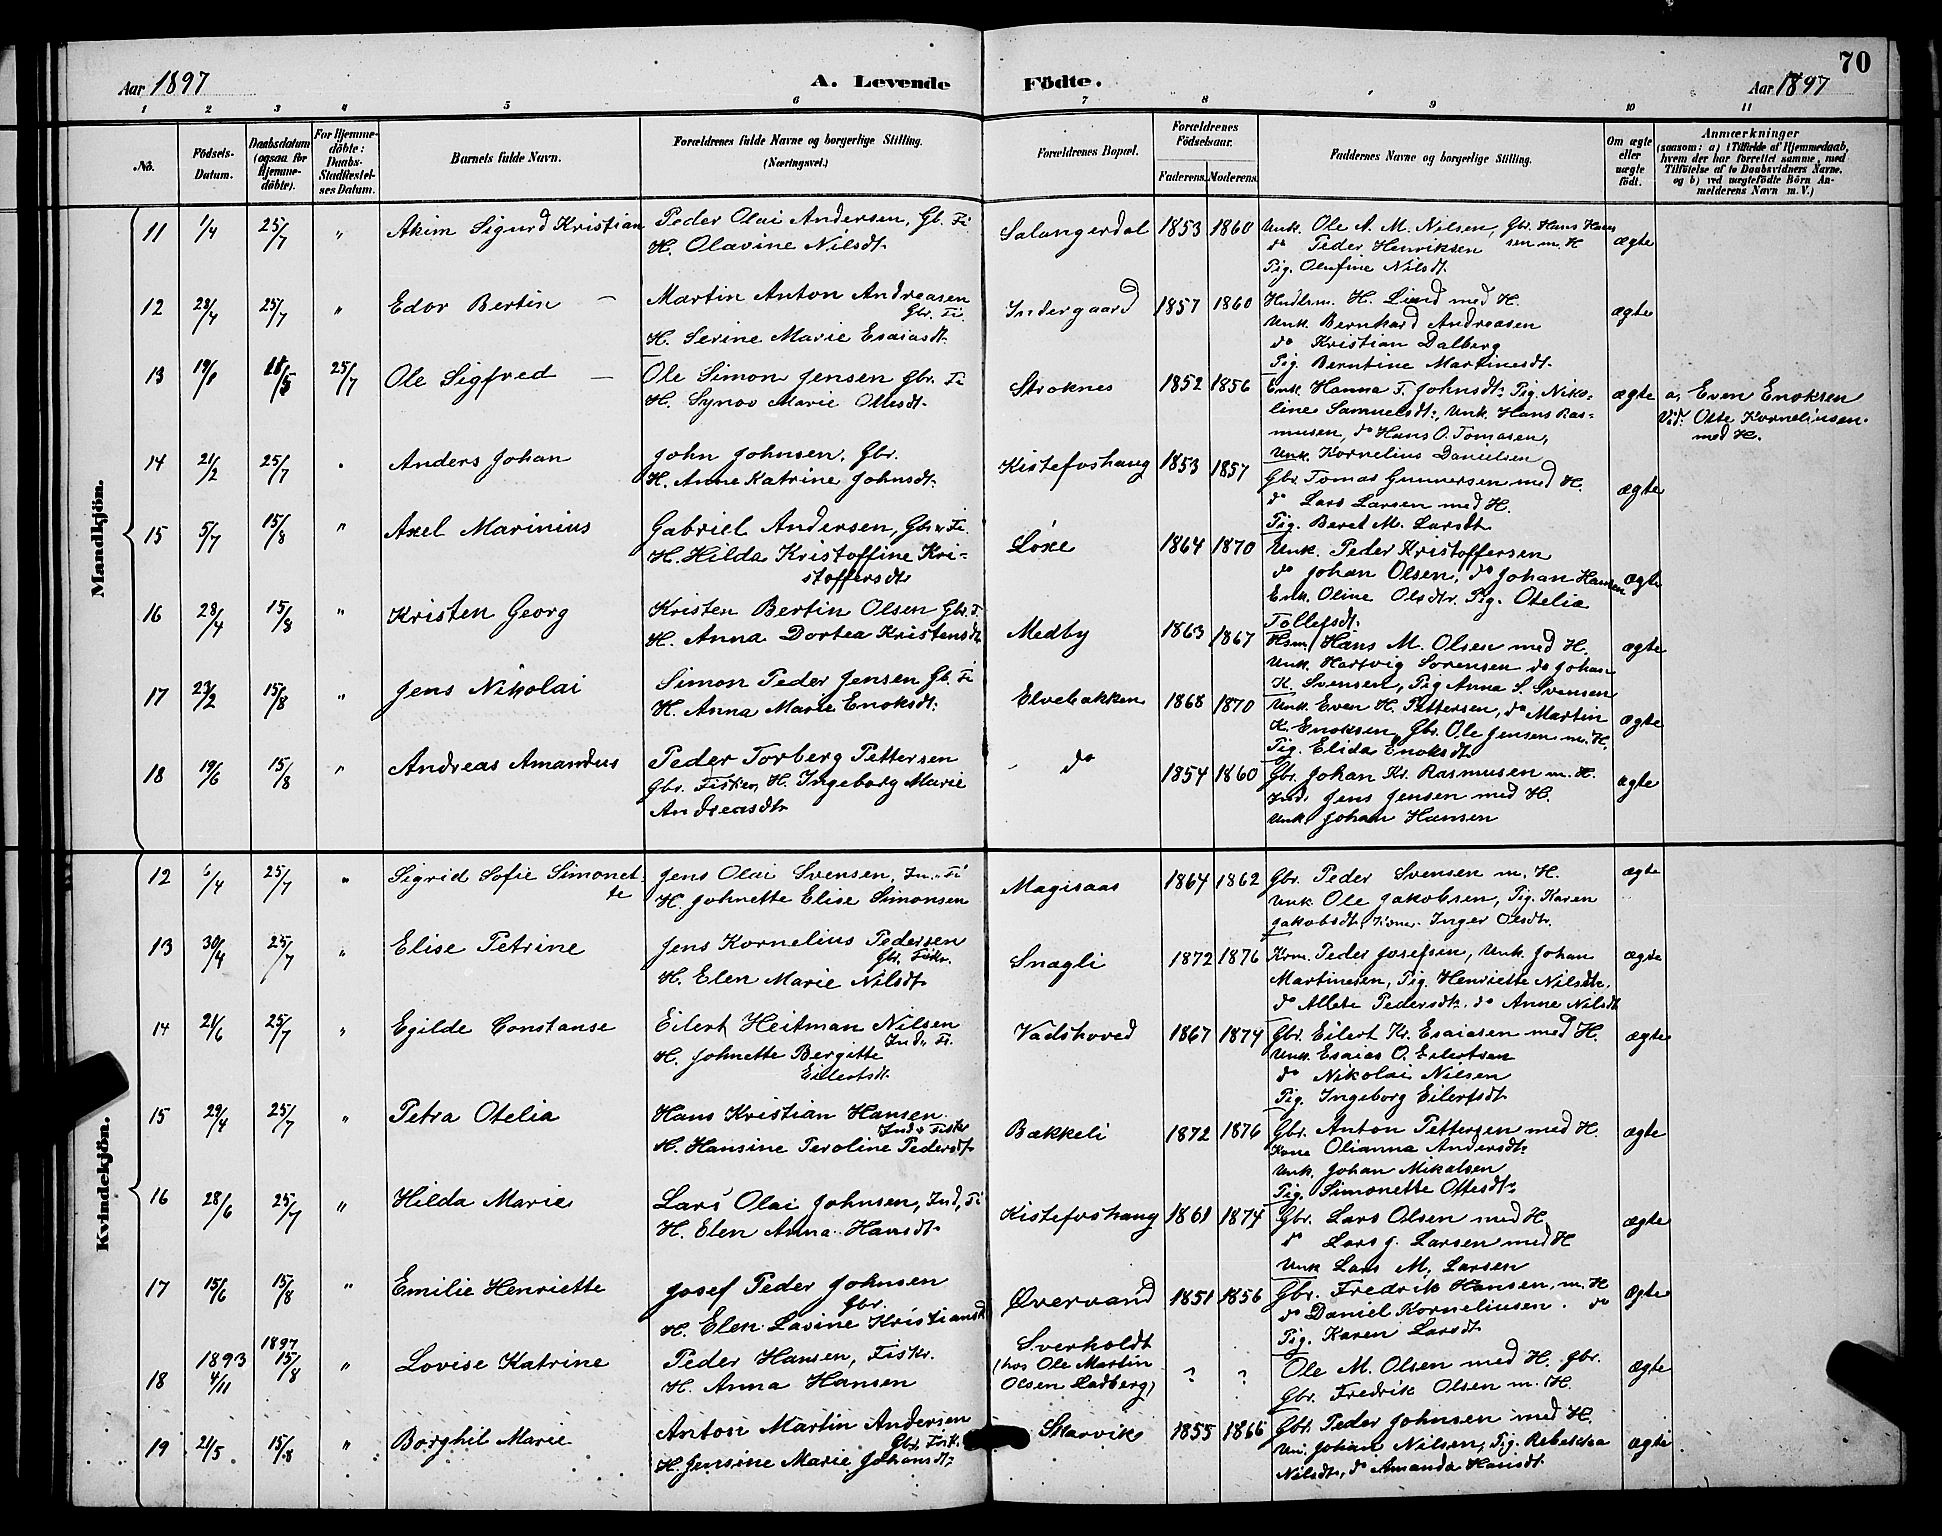 70
Aar 1897
A. Levende
Födte.
Aar 1897
1 2 3 4 5 6 7 8 9 10 11
No.
Födsels-Datum.
Daabsdatum (ogsaa for Hjemme-döbte).
For Hjemme-döbte: Daabs-Stadfæstel-ses Datum.
Barnets fulde Navn.
Forældrenes fulde Navne og borgerlige Stilling. (Næringsvei.)
Forældrenes Bopæl.
Forældrenes Födselsaar.
Faderens. Moderens.
Faddernes Navne og borgerlige Stilling.
Om ægte eller uægte födt.
Anmærkninger
(saasom: a) i Tilfælde af Hjemmedaab, hvem der har forrettet samme, med Tilföielse af to Daabsvidners Navne, og b) ved uægtefödte Börn An-melderens Navn m. V.)
Mandkjön.
11 1/4 25/7 " Akim Sigurd Kristian
Peder Olai Andersen, Gb. Fi
H. Olavine Nilsdt.
Salangerdal 1853 1860
Unk. Ole A. M. Nilsen, Gbr. Hans Hansen m. H
do Peder Henriksen
Pig. Olufine Nilsdt.
ægte
12 28/4 25/7 " Edor Bertin
Martin Anton Andreasen
Gbr. Fi.
H. Serine Marie Esaiasdt.
Indergaard 1857 1860
Hndlsm. H. Lind med H.
Unk. Bernhard Andreasen
do Kristian Dalberg
Pig. Berntine Martinesdt.
ægte
13 19/1 25/7 Ole Sigfred
Ole Simon Jensen Gbr. Fi
H. Synov Marie Ottesdt.
Stroknes 1852 1856
Enk. Hanna F. Johnsdt. Pig. Niko-
line Samuelsdt., Unk. Hans Ras-
musen, do Hans O. Tomasen,
Unk. Kornelius Danielsen
ægte
a, Even Enoksen
Vid. Otte Korneliusen.
med H.
14 21/2 25/7 Anders Johan
John Johnsen, Gbr.
H. Anne Katrine Johnsdt.
Kistefoshaug 1853 1857
Gbr. Tomas Gunnersen med H.
do Lars Larsen med H.
Pig. Beret M. Larsdt.
ægte
15 5/7 15/8 " Axel Marinius
Gabriel Andersen, Gbr. Fi.
H. Hilda Kristoffine Kri-
stoffersdt.
Löxe 1864 1870
Unk. Peder Kristoffersen
do Johan Olsen, do Johan Hansen
Enk. Oline Olsdtr. Pig. Otelia
Tollefsdt.
ægte
16 28/4 15/8 " Kristen Georg
Kristen Bertin Olsen Gbr. F.
H. Anna Dortea Kristensdt.
Medby 1863 1867
Hsm. Hans M. Olsen med H.
Unk. Hartvig Sorensen do Johan
K. Svensen, Pig Anna S. Svensen
ægte
17 23/2 15/8 " Jens Nikolai
Simon Peder Jensen Gb. Fi
H. Anna Marie Enoksdt.
Elvebakken 1868 1870
Unk. Even H. Pettersen, do Martin
K. Enoksen, Gbr. Ole Jensen m. H.
Pig. Elida Enoksdt.
ægte
18 19/6 15/8 " Andreas Amandus
Peder Torberg Pettersen
Gbr. Fisker, H. Ingeborg Marie
Andreasdtr
do 1854 1860
Gbr. Johan Kr. Rasmusen m. H.
Ind. Jens Jensen med H.
Unk. Johan Hansen
ægte
Kvindekjön.
12 6/4 25/7 " Sigrid Sofie Simonet-
te
Jens Olai Svensen, In. Fi
H. Johnette Elise Simonsen
Magisaas 1864 1862
Gbr. Peder Svensen m. H.
Unk. Ole Jakobsen, Pig. Karen
Jakobsdt., Inger Olsdtr.
ægte
13 30/4 25/7 " Elise Petrine
Jens Kornelius Pedersen
Gbr. Fiskr.
H. Elen Marie Nilsdt.
Snægli 1872 1876
Krm. Peder Josefsen, Unk. Johan
Martinesen, Pig. Henriette Nilsdtr.
do Allete Pedersdt. do Anne Nilsdt
ægte
14 21/6 25/7 " Egilde Constanse
Eilert Heitman Nilsen
Ind. Fi.
H. Johnette Bergitte
Eilertsdt.
Vadshoved 1867 1874
Gbr. Eilert Kr. Esaiasen med H.
Unk. Esaias O. Eilertsen
do Nikolai Nilsen
Pig. Ingeborg Eilertsdt
ægte
15 29/4 25/7 " Petra Otelia
Hans Kristian Hansen
Ind. Fiskr
H. Hansine Peroline Pedersdt.
Bækkeli 1872 1876
Gbr. Anton Pettersen med H.
Kone Olianna Andersdt.
Unk. Johan Mikalsen
Pig. Simonette Ottesdt.
ægte
16 28/6 25/7 " Hilda Marie
Lars Olai Johnsen, Ind, Fi
H. Elen Anna Hansdt.
Kistefoshaug 1861 1874
Gbr. Lars Olsen med H
do Lars J. Larsen med H
Unk Lars M. Larsen
ægte
17 15/6 15/8 " Emilie Henriette
Josef Peder Johnsen
Gbr.
H. Elen Lavine Kristiansdt
Övervand 1851 1856
Gbr. Fredrik Hansen, m. H
do Daniel Korneliusen. do
Pig. Karen Larsdt.
ægte
18 1893 4/11 1897 15/8 " Lovise Katrine
Peder Hansen, Fiskr.
H. Anna Hansen
Sverholdt
(hos Ole Martin
Olsen Ladberg)
? ?
Ole M. Olsen med H. Gbr.
Gbr. Fredrik Olsen m. H.
ægte
19 21/5 15/8 " Borghil Marie
Anton Martin Andersen
Gbr. Fisk.
H. Jensine Marie Johansdt.
Skarvik 1855 1866
Gbr. Peder Johnsen med H.
Un. Johan Nilsen, Pig. Rebekka
Nilsdt., do Amanda Hansdt.
ægte